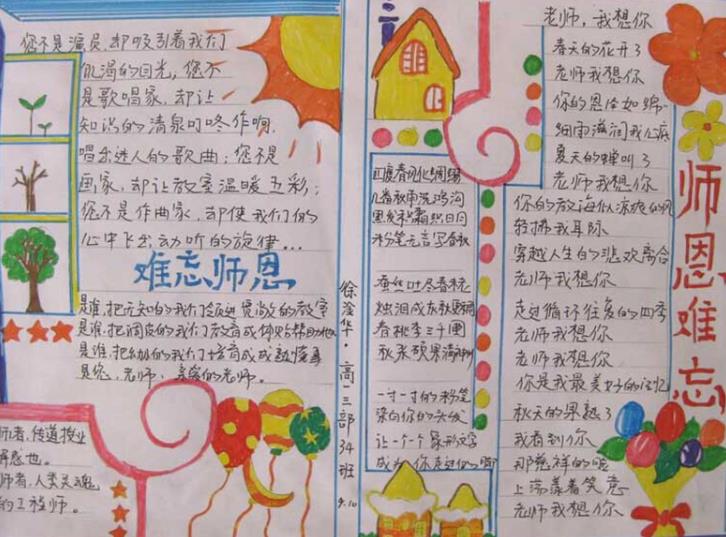 您不是演员,却吸引着我们
饥渴的目光,您不
是歌唱家,却让
知识的清泉叮咚作响,
唱出迷人的歌曲;您不是
画家,却让教室温暖五彩;
您不是作曲家,却使我们的
心中飞出动听的旋律...
难忘师恩
是谁,把无知的我们领进宽敞的教室
是谁,把调皮的我们教育成
是谁,把幼小的我们培育成成熟懂事
是您,老师,亲爱的老师。
师者,传道授业
解惑也。
师者,人类灵魂
的工程师。
徐滢华·高一三部34班
9.10
几番秋雨洗鸿沟
黑发积霜织日月
粉笔无言写春秋
蚕丝吐尽春未老
烛泪成灰秋更稠
春播桃李三千圃
秋来硕果满神州
一寸一寸的粉笔
染白你的头发
让一个个象形文字
成为你走进
老师,我想你
春天的花开了
老师我想你
你的恩泽如绵绵
细雨滋润我心底
夏天的蝉叫了
老师我想你
你的教诲似凉爽的风
轻拂我耳际
穿越人生的悲欢离合
老师我想你
走过循环往复的四季
老师我想你
老师我想你
你是我最美好的记忆
秋天的果熟了
我看到你
那慈祥的眼
上荡漾着笑意
老师我想你
师恩难忘